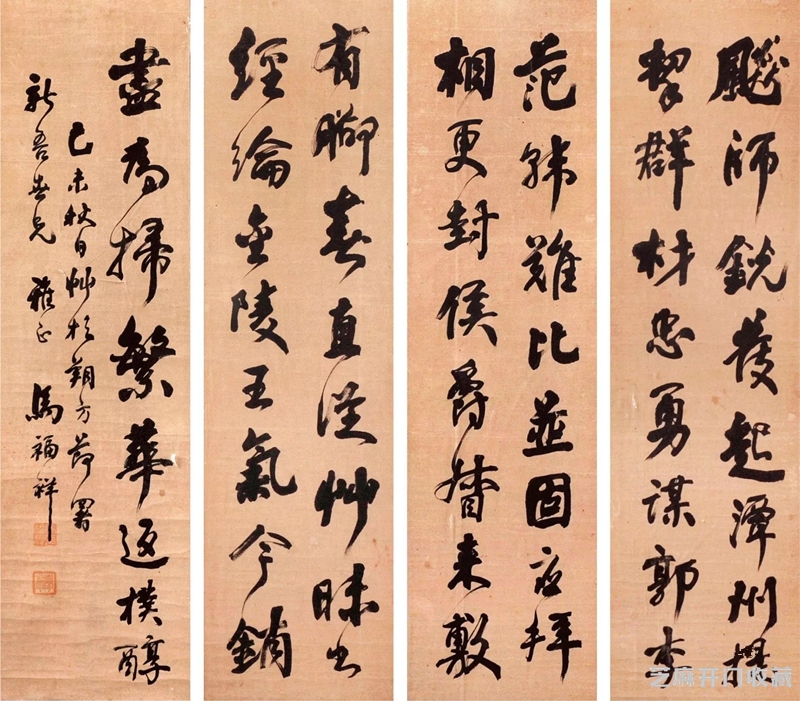 飚师銳發起潭州提
挈群材忠勇謀郭李
范韩難比並固應拜
相更封侯爵督来敷
有腳春直從艸昧出
經綸金陵王氣今銷
盡為掃繁華返樸醇
己未秋日艸於朔方節署
新吾世兄 雅正 馬福祥
芝麻开门收藏